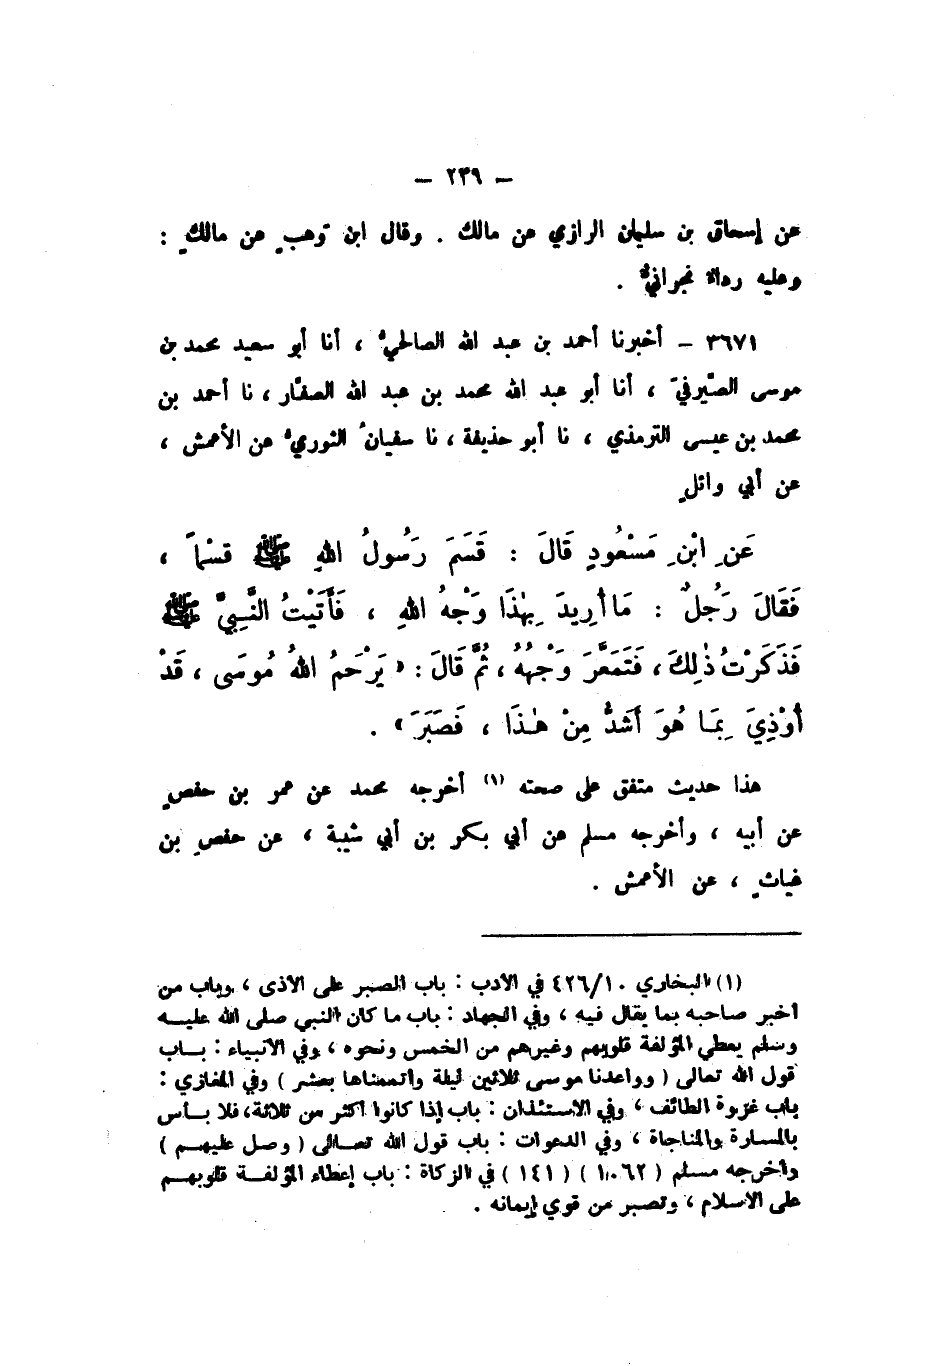 – ٢٣٩ –
عن إسحاق بن سليمان الرازي عن مالك . وقال ابن وهبٍ عن مالكٍ :
وعليه رداءٌ نجرانيٌّ .
٣٦٧١ – أخبرنا أحمد بن عبد الله الصالحيُّ ، أنا أبو سعيد محمد بن
موسى الصَّيرفيّ ، أنا أبو عبد الله محمد بن عبد الله الصفَّار ، نا أحمد بن
محمد بن عيسى الترمذي ، نا أبو حذيفة ، نا سفيانُ الثوريُّ عن الأعمش ،
عن أبي وائلٍ
عَنِ ابْنِ مَسْعُودٍ قَالَ : قَسَمَ رَسُولُ اللهِ ﷺ قسْماً ،
فَقَالَ رَجُلٌ : مَا أُرِيدَ بِهٰذَا وَجْهُ اللهِ ، فَأَتَيْتُ النَّبِيَّ ﷺ
فَذَكَرْتُ ذٰلِكَ ، فَتَمَعَّرَ وَجْهُهُ ، ثُمَّ قَالَ : « يَرْحَمُ اللهُ مُوسَى ، قَدْ
أُوْذِيَ بِمَا هُوَ أَشَدُّ مِنْ هٰذَا ، فَصَبَرَ » .
هذا حديث متفق على صحته (١) أخرجه محمد عن عمر بن حفصٍ
عن أبيه ، وأخرجه مسلم عن أبي بكر بن أبي شيبة ، عن حفصِ بن
غياثٍ ، عن الأعمش .
(١) البخاري ٤٢٦/١٠ في الادب : باب الصبر على الاذى ، وباب من
أخبر صاحبه بما يقال فيه ، وفي الجهاد : باب ما كان النبي صلى الله عليه
وسلم يعطي المؤلفة قلوبهم وغيرهم من الخمس ونحوه ، وفي الانبياء : باب
قول الله تعالى ( وواعدنا موسى ثلاثين ليلة وأتممناها بعشر ) وفي المغازي :
باب غزوة الطائف ، وفي الاستئذان : باب إذا كانوا أكثر من ثلاثة، فلا بأس
بالمسارة والمناجاة ، وفي الدعوات : باب قول الله تعالى ( وصل عليهم )
وأخرجه مسلم ( ١٠٦٢ ) ( ١٤١ ) في الزكاة : باب إعطاء المؤلفة قلوبهم
على الاسلام ، وتصبر من قوي إيمانه .